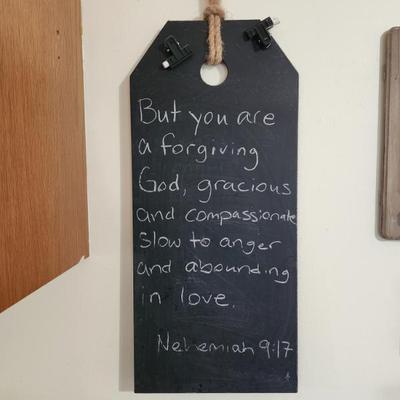 But you are
a forgiving
God, gracious
and compassionate
Slow to anger
and abounding
in love.
Nehemiah 9:17